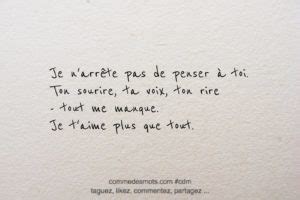 Je n'arrête pas de penser à toi.
Ton sourire, ta voix, ton rire
- tout me manque.
Je t'aime plus que tout.
commedesmots.com #cdm
taguez, likez, commentez, partagez ...